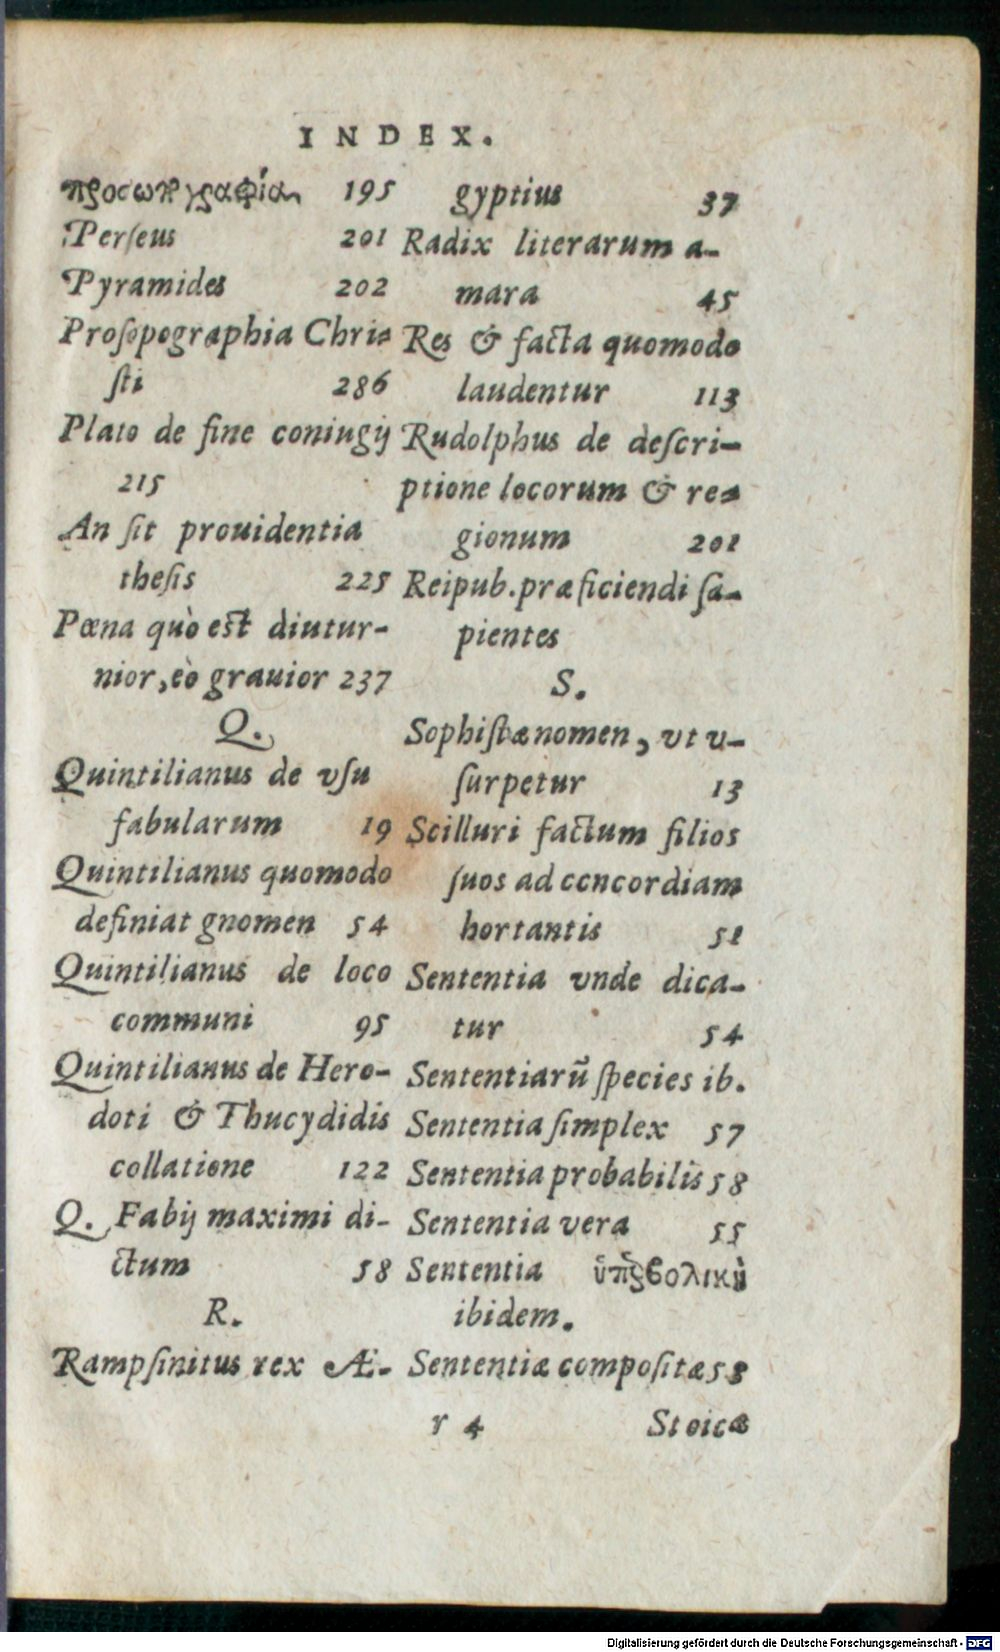 INDEX.
προσωπογραφία 195
Perseus 201
Pyramides 202
Proſopographia Chri-
ſti 286
Plato de fine coniugij
215
An ſit prouidentia
theſis 225
Pœna quò est diutur-
nior, eò grauior 237
Q.
Quintilianus de vſu
fabularum 19
Quintilianus quomodo
definiat gnomen 54
Quintilianus de loco
communi 95
Quintilianus de Hero-
doti & Thucydidis
collatione 122
Q. Fabij maximi di-
ctum 58
R.
Rampſinitus rex Æ-
gyptius 37
Radix literarum a-
mara 45
Res & facta quomodo
laudentur 113
Rudolphus de deſcri-
ptione locorum & re-
gionum 201
Reipub. præficiendi ſa-
pientes
S.
Sophiſtæ nomen, vt v-
ſurpetur 13
Scilluri factum filios
ſuos ad concordiam
hortantis 51
Sententia vnde dica-
tur 54
Sententiarũ ſpecies ib.
Sententia ſimplex 57
Sententia probabilis 58
Sententia vera 55
Sententia ὑπερβολικὴ
ibidem.
Sententiæ compoſitæ 58
r 4 Stoicæ
Digitalisierung gefördert durch die Deutsche Forschungsgemeinschaft - DFG